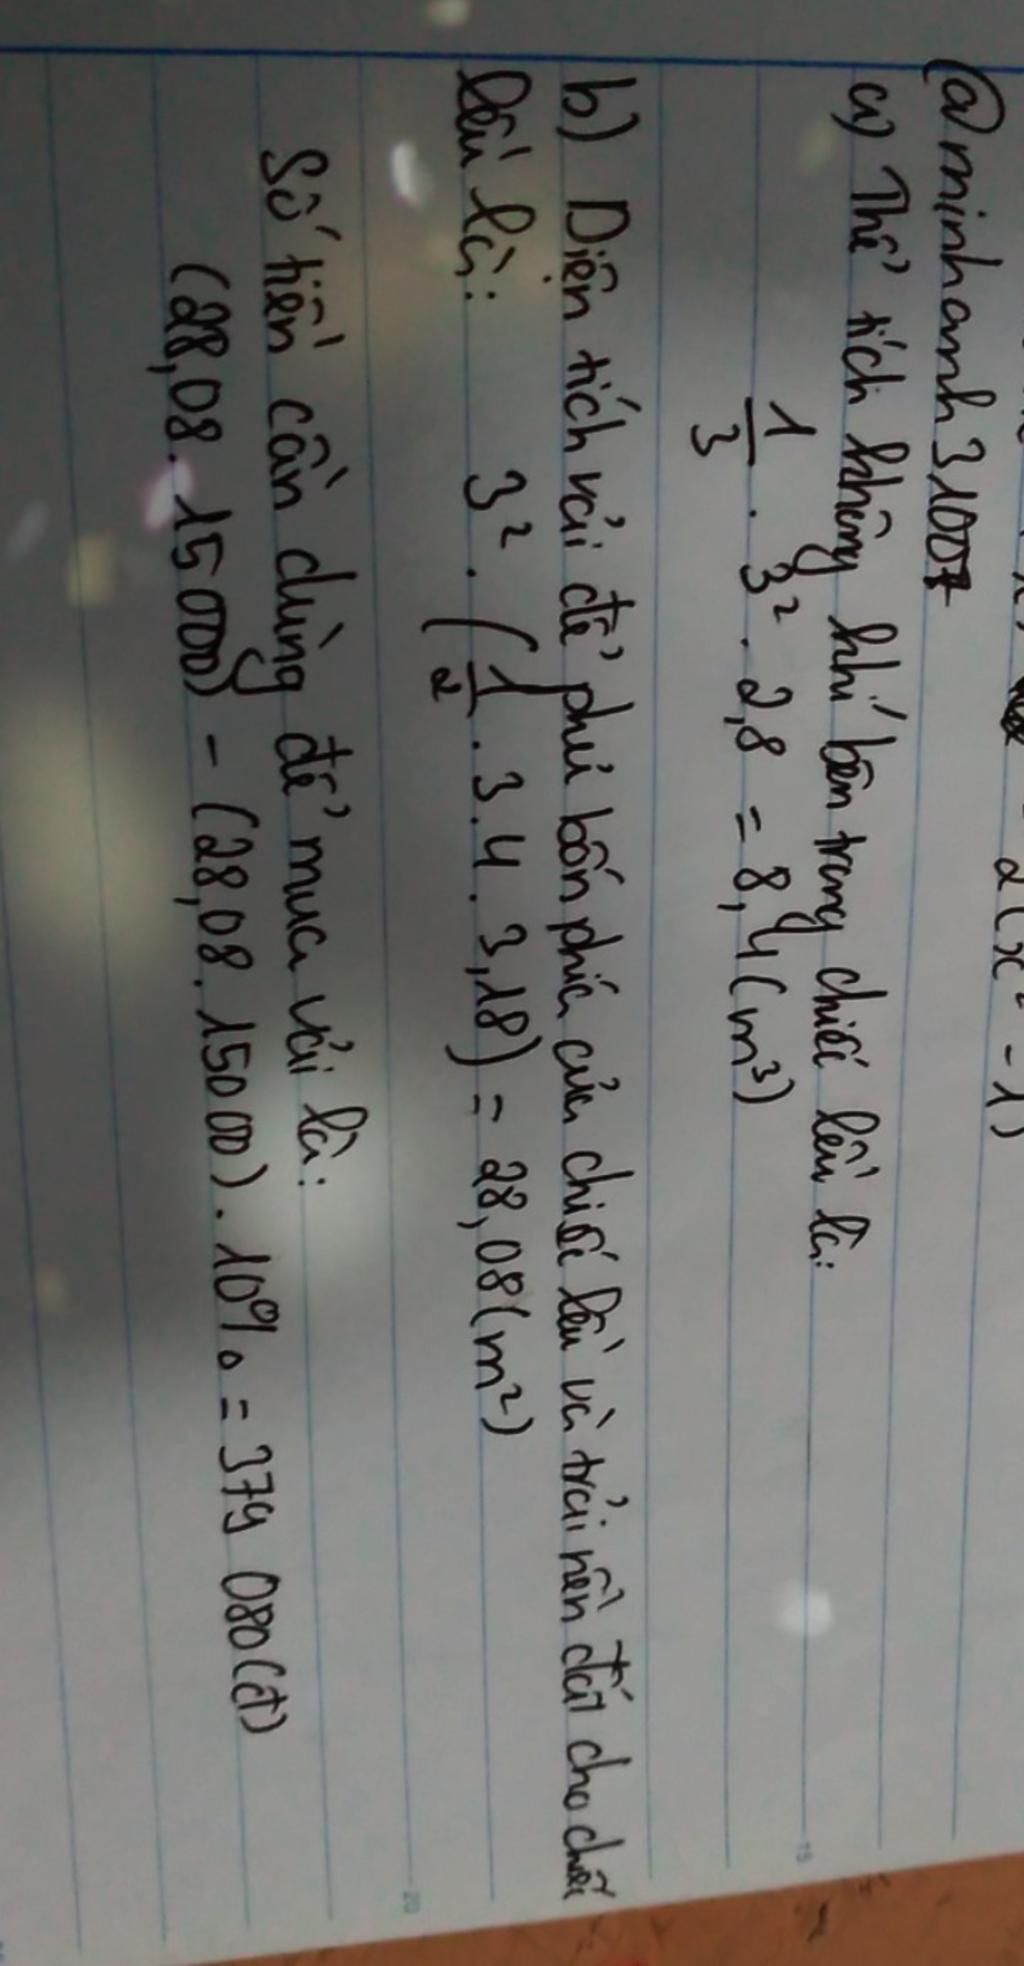 2(x² - 1)
@minhanh31007
a) Thể tích không khí bên trong chiếc lều là:
1/3 . 3² . 2,8 = 8,4 (m³)
b) Diện tích vải để phủ bốn phía của chiếc lều và trải nền đất cho chiếc
lều là: 3² . (1/2 . 3.4 . 3,18) = 28,08 (m²)
Số tiền cần dùng để mua vải là:
(28,08 . 15 000) - (28,08 . 15000) . 10% = 379 080 (đ)
19
20